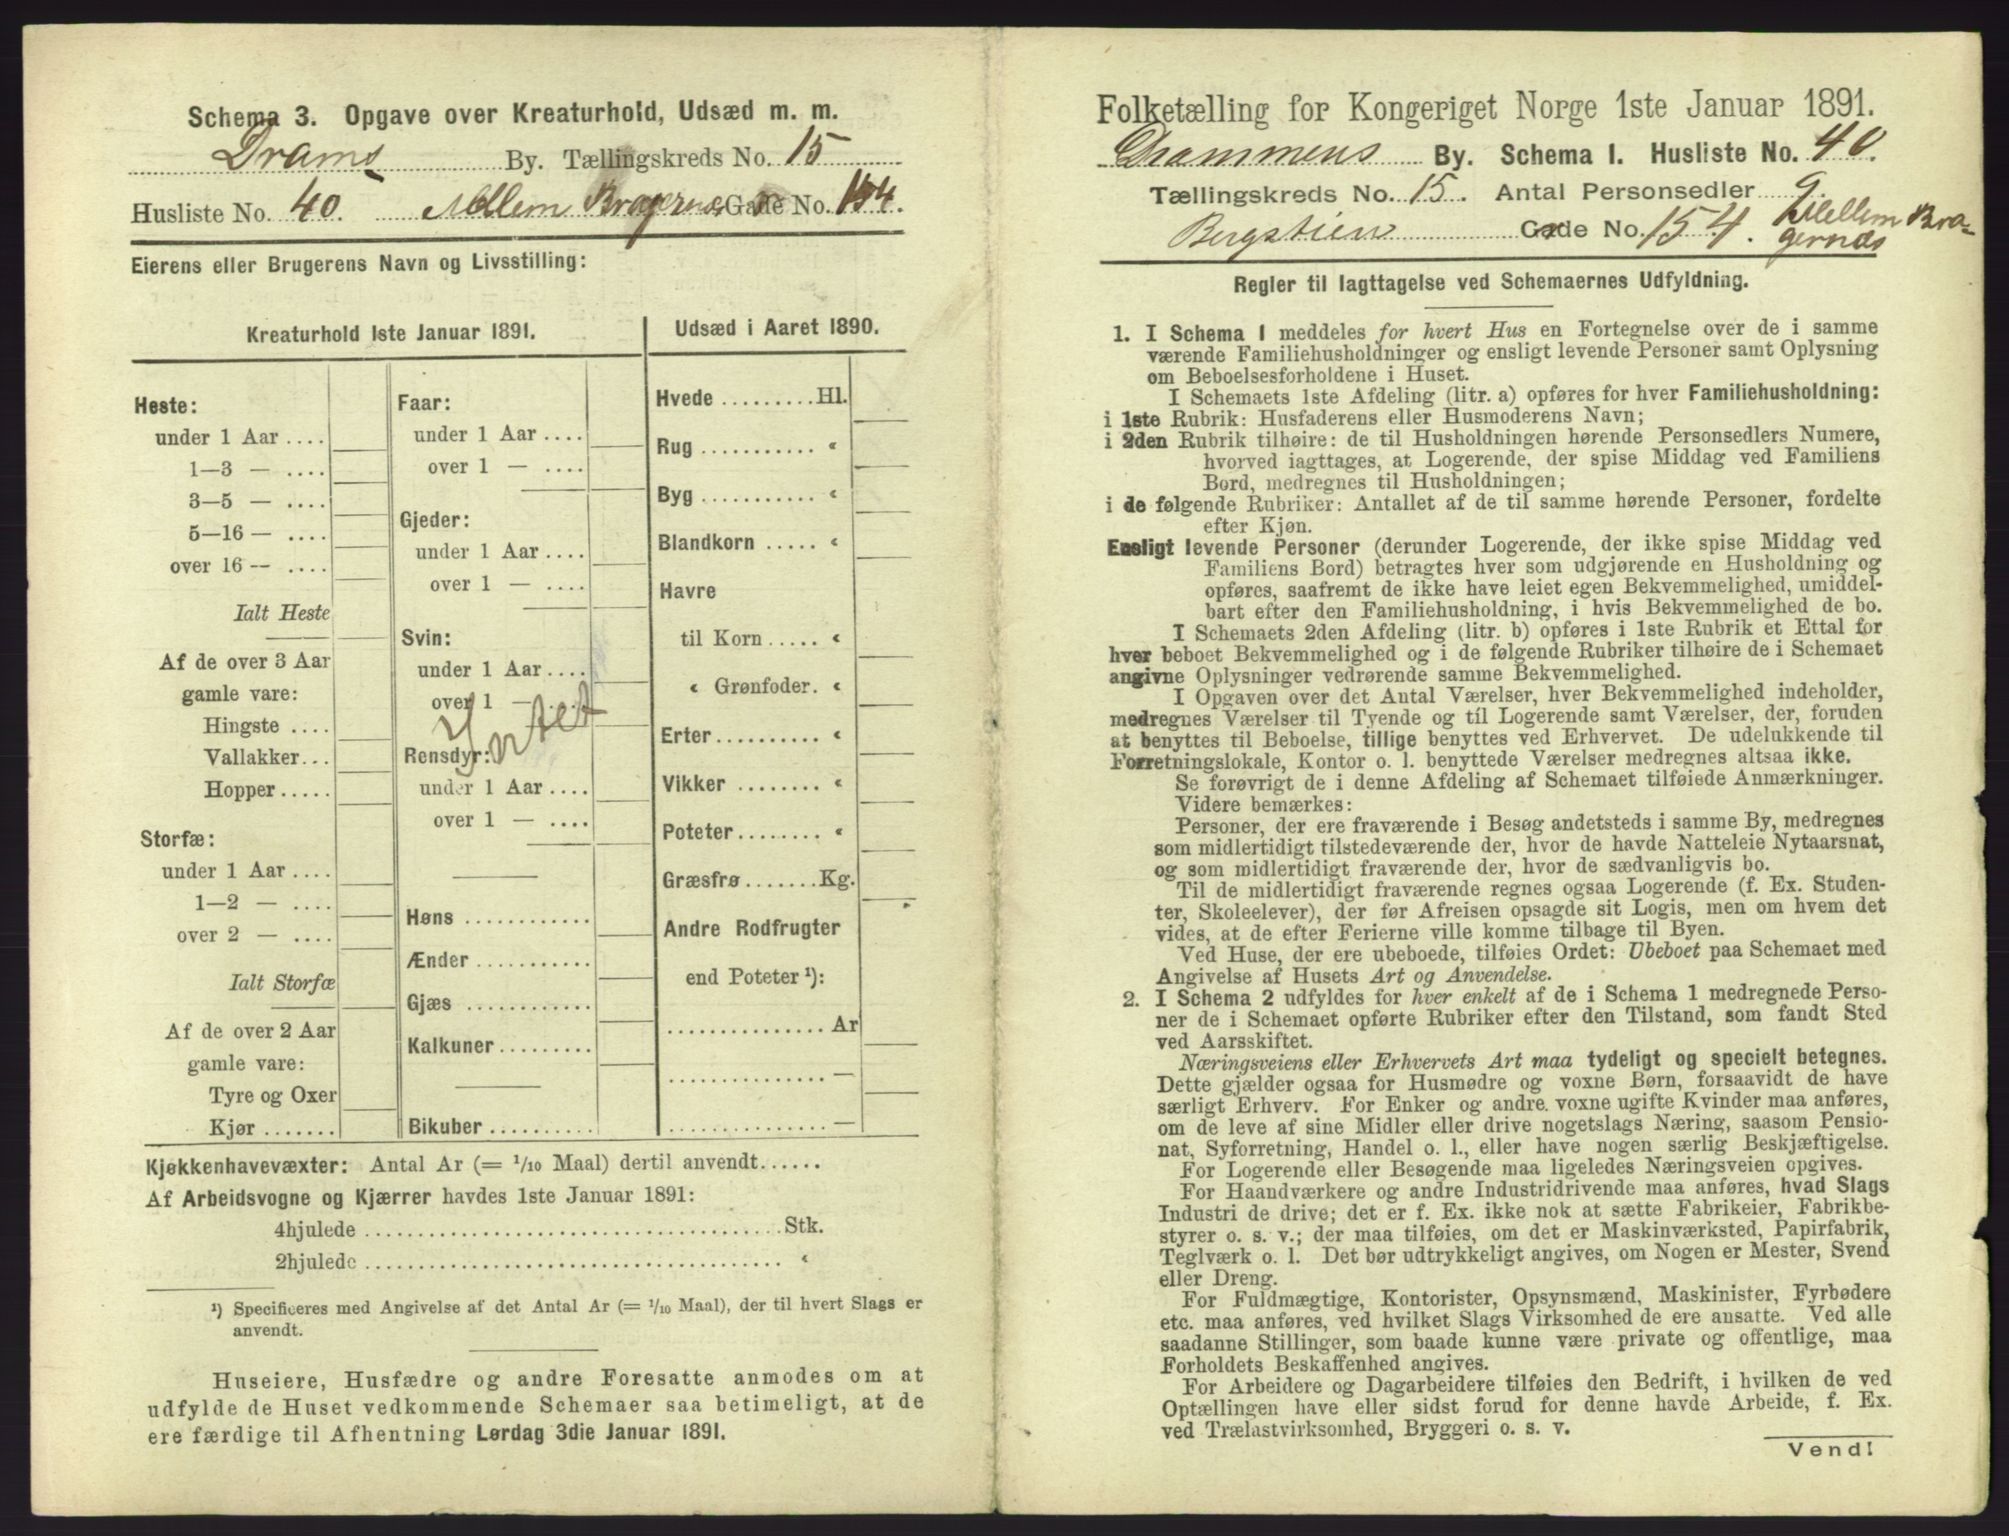 Schema 3. Opgave over Kreaturhold, Udsæd m. m.
Drams By. Tællingskreds No. 15
Husliste No. 40. Mellem Bragernæs Gade No. 154.
Eierens eller Brugerens Navn og Livsstilling:
Kreaturhold 1ste Januar 1891.
Heste:
under 1 Aar ....
1—3 — ....
3—5 — ....
5—16 — ....
over 16 — ....
Ialt Heste
Af de over 3 Aar
gamle vare:
Hingste ....
Vallakker...
Hopper.....
Storfæ:
under 1 Aar ....
1—2 — ....
over 2 — ....
Ialt Storfæ
Af de over 2 Aar
gamle vare:
Tyre og Oxer
Kjør .......
Faar:
under 1 Aar ....
over 1 — ....
Gjeder:
under 1 Aar ....
over 1 — ....
Svin:
under 1 Aar ....
over 1 — ....
Intet
Rensdyr:
under 1 Aar ....
over 1 — ....
Høns ............
Ænder ...........
Gjæs ............
Kalkuner.........
Bikuber ..........
Udsæd i Aaret 1890.
Hvede .........Hl.
Rug ........... «
Byg ........... «
Blandkorn ..... «
Havre
til Korn ..... «
« Grønfoder. «
Erter.......... «
Vikker ........ «
Poteter........ «
Græsfrø.......Kg.
Andre Rodfrugter
end Poteter ¹):
............... Ar
............... —
............... —
Kjøkkenhavevæxter: Antal Ar (= 1/10 Maal) dertil anvendt......
Af Arbeidsvogne og Kjærrer havdes 1ste Januar 1891:
4hjulede ........................................Stk.
2hjulede ........................................ «
¹) Specificeres med Angivelse af det Antal Ar (= 1/10 Maal), der til hvert Slags er
anvendt.
Huseiere, Husfædre og andre Foresatte anmodes om at
udfylde de Huset vedkommende Schemaer saa betimeligt, at de
ere færdige til Afhentning Lørdag 3die Januar 1891.
Folketælling for Kongeriget Norge 1ste Januar 1891.
Drammens By. Schema 1. Husliste No. 40.
Tællingskreds No. 15. Antal Personsedler 9.
Bergstien Gade No. 154. Mellem Bra-
gernæs
Regler til Iagttagelse ved Schemaernes Udfyldning.
1. I Schema 1 meddeles for hvert Hus en Fortegnelse over de i samme
værende Familiehusholdninger og ensligt levende Personer samt Oplysning
om Beboelsesforholdene i Huset.
I Schemaets 1ste Afdeling (litr. a) opføres for hver Familiehusholdning:
i 1ste Rubrik: Husfaderens eller Husmoderens Navn;
i 2den Rubrik tilhøire: de til Husholdningen hørende Personsedlers Numere,
hvorved iagttages, at Logerende, der spise Middag ved Familiens
Bord, medregnes til Husholdningen;
i de følgende Rubriker: Antallet af de til samme hørende Personer, fordelte
efter Kjøn.
Ensligt levende Personer (derunder Logerende, der ikke spise Middag ved
Familiens Bord) betragtes hver som udgjørende en Husholdning og
opføres, saafremt de ikke have leiet egen Bekvemmelighed, umiddel-
bart efter den Familiehusholdning, i hvis Bekvemmelighed de bo.
I Schemaets 2den Afdeling (litr. b) opføres i 1ste Rubrik et Ettal for
hver beboet Bekvemmelighed og i de følgende Rubriker tilhøire de i Schemaet
angivne Oplysninger vedrørende samme Bekvemmelighed.
I Opgaven over det Antal Værelser, hver Bekvemmelighed indeholder,
medregnes Værelser til Tyende og til Logerende samt Værelser, der, foruden
at benyttes til Beboelse, tillige benyttes ved Erhvervet. De udelukkende til
Forretningslokale, Kontor o. l. benyttede Værelser medregnes altsaa ikke.
Se forøvrigt de i denne Afdeling af Schemaet tilføiede Anmærkninger.
Videre bemærkes:
Personer, der ere fraværende i Besøg andetsteds i samme By, medregnes
som midlertidigt tilstedeværende der, hvor de havde Natteleie Nytaarsnat,
og som midlertidigt fraværende der, hvor de sædvanligvis bo.
Til de midlertidigt fraværende regnes ogsaa Logerende (f. Ex. Studen-
ter, Skoleelever), der før Afreisen opsagde sit Logis, men om hvem det
vides, at de efter Ferierne ville komme tilbage til Byen.
Ved Huse, der ere ubeboede, tilføies Ordet: Ubeboet paa Schemaet med
Angivelse af Husets Art og Anvendelse.
2. I Schema 2 udfyldes for hver enkelt af de i Schema 1 medregnede Perso-
ner de i Schemaet opførte Rubriker efter den Tilstand, som fandt Sted
ved Aarsskiftet.
Næringsveiens eller Erhvervets Art maa tydeligt og specielt betegnes.
Dette gjælder ogsaa for Husmødre og voxne Børn, forsaavidt de have
særligt Erhverv. For Enker og andre voxne ugifte Kvinder maa anføres,
om de leve af sine Midler eller drive nogetslags Næring, saasom Pensio-
nat, Syforretning, Handel o. l., eller have nogen særlig Beskjæftigelse.
For Logerende eller Besøgende maa ligeledes Næringsveien opgives.
For Haandværkere og andre Industridrivende maa anføres, hvad Slags
Industri de drive; det er f. Ex. ikke nok at sætte Fabrikeier, Fabrikbe-
styrer o. s. v.; der maa tilføies, om det er Maskinværksted, Papirfabrik,
Teglværk o. l. Det bør udtrykkeligt angives, om Nogen er Mester, Svend
eller Dreng.
For Fuldmægtige, Kontorister, Opsynsmænd, Maskinister, Fyrbødere
etc. maa anføres, ved hvilket Slags Virksomhed de ere ansatte. Ved alle
saadanne Stillinger, som baade kunne være private og offentlige, maa
Forholdets Beskaffenhed angives.
For Arbeidere og Dagarbeidere tilføies den Bedrift, i hvilken de ved
Optællingen have eller sidst forud for denne havde Arbeide, f. Ex.
ved Trælastvirksomhed, Bryggeri o. s. v.
Vend!